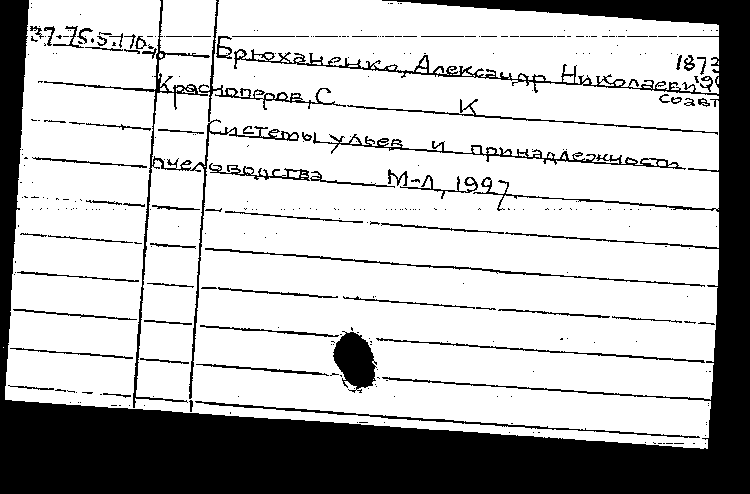 37.75.5.110. Брюханенко, Александр Николаевич 1873
Красноперов, С К соавт
Системы ульев и принадлежности
пчеловодства М-Л, 1997.